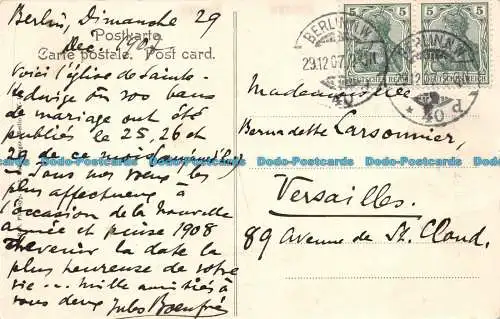 Berlin, Dimanche 29
Dec. 1907
Postkarta
Carte postale. Post card.
Voici l'église de Sainte-
Hedwige où vos bans
de mariage ont été
publiés le 25, 26 et
29 de ce mois
Tous nos vœux les
plus affectueux à
l'occasion de la Nouvelle
année et puisse 1908
devenir la date la
plus heureuse de votre
vie... Mille amitiés à
vous deux Jules
Mademoiselle
Bernadette Carsonnier,
Versailles.
89 avenue de St. Cloud.
5 5 5 5
DEUTSCHES REICH DEUTSCHES REICH
BERLIN N.W.
29.12.07
40
BERLIN N.W.
12
* 40 d
Dodo-Postcards Dodo-Postcards Dodo-Postcards Dodo-Postcards